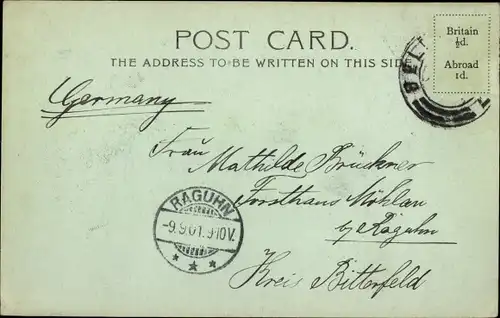 POST CARD.
Britain
½d.
Abroad
1d.
THE ADDRESS TO BE WRITTEN ON THIS SID
Germany
Frau Mathilde Brückner
Forsthaus Möhlau
b/Raguhn
Kreis Bitterfeld
RAGUHN
-9.9.01.9-10V.